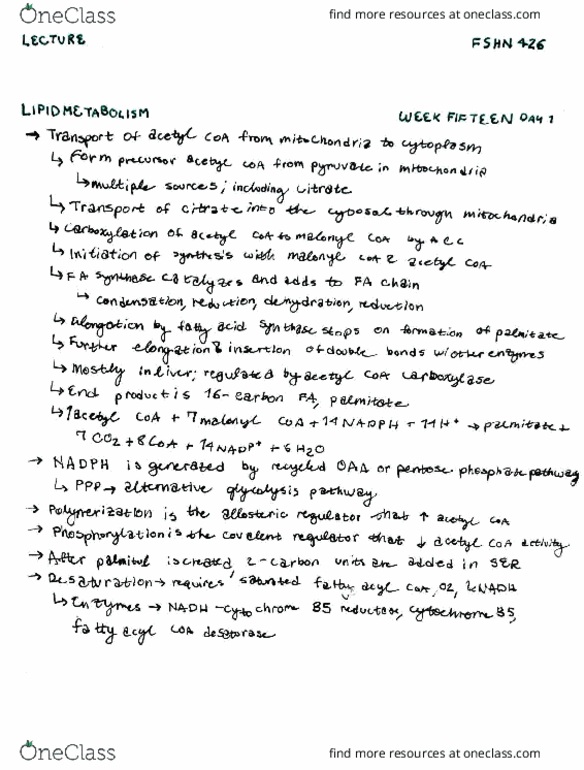 OneClass find more resources at oneclass.com
LECTURE FSHN 426
LIPID METABOLISM WEEK FIFTEEN DAY 1
→ Transport of acetyl CoA from mitochondria to cytoplasm
↳ Form precursor acetyl CoA from pyruvate in mitochondria
↳ multiple sources; including citrate
↳ Transport of citrate into the cytosol through mitochondria
↳ Carboxylation of acetyl CoA to malonyl CoA by ACC
↳ Initiation of synthesis with malonyl CoA & acetyl CoA
↳ FA synthase catalyzes and adds to FA chain
↳ condensation, reduction, dehydration, reduction
↳ Elongation by fatty acid synthase stops on formation of palmitate
↳ Further elongation & insertion of double bonds w/other enzymes
↳ Mostly in liver; regulated by acetyl CoA carboxylase
↳ End product is 16-carbon FA, palmitate
↳ 1 acetyl CoA + 7 malonyl CoA + 14 NADPH + 14 H+ → palmitate +
7 CO2 + 8 CoA + 14 NADP+ + 6 H2O
→ NADPH is generated by recycled OAA or pentose phosphate pathway
↳ PPP → alternative glycolysis pathway
→ Polymerization is the allosteric regulator that ↑ acetyl CoA
→ Phosphorylation is the covalent regulator that ↓ acetyl CoA activity
→ After is created 2-carbon units are added in SER
→ Desaturation → requires saturated fatty acyl CoA, O2, & NADH
↳ Enzymes → NADH-cytochrome B5 reductase, cytochrome B5,
fatty acyl CoA desaturase
OneClass find more resources at oneclass.com